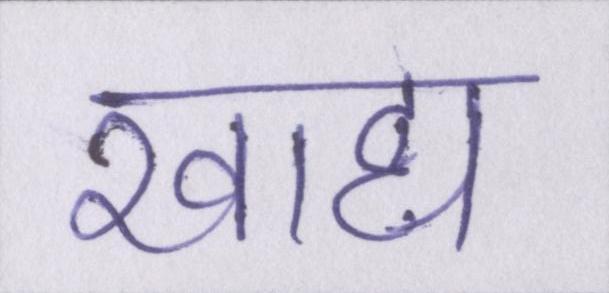 खाद्य